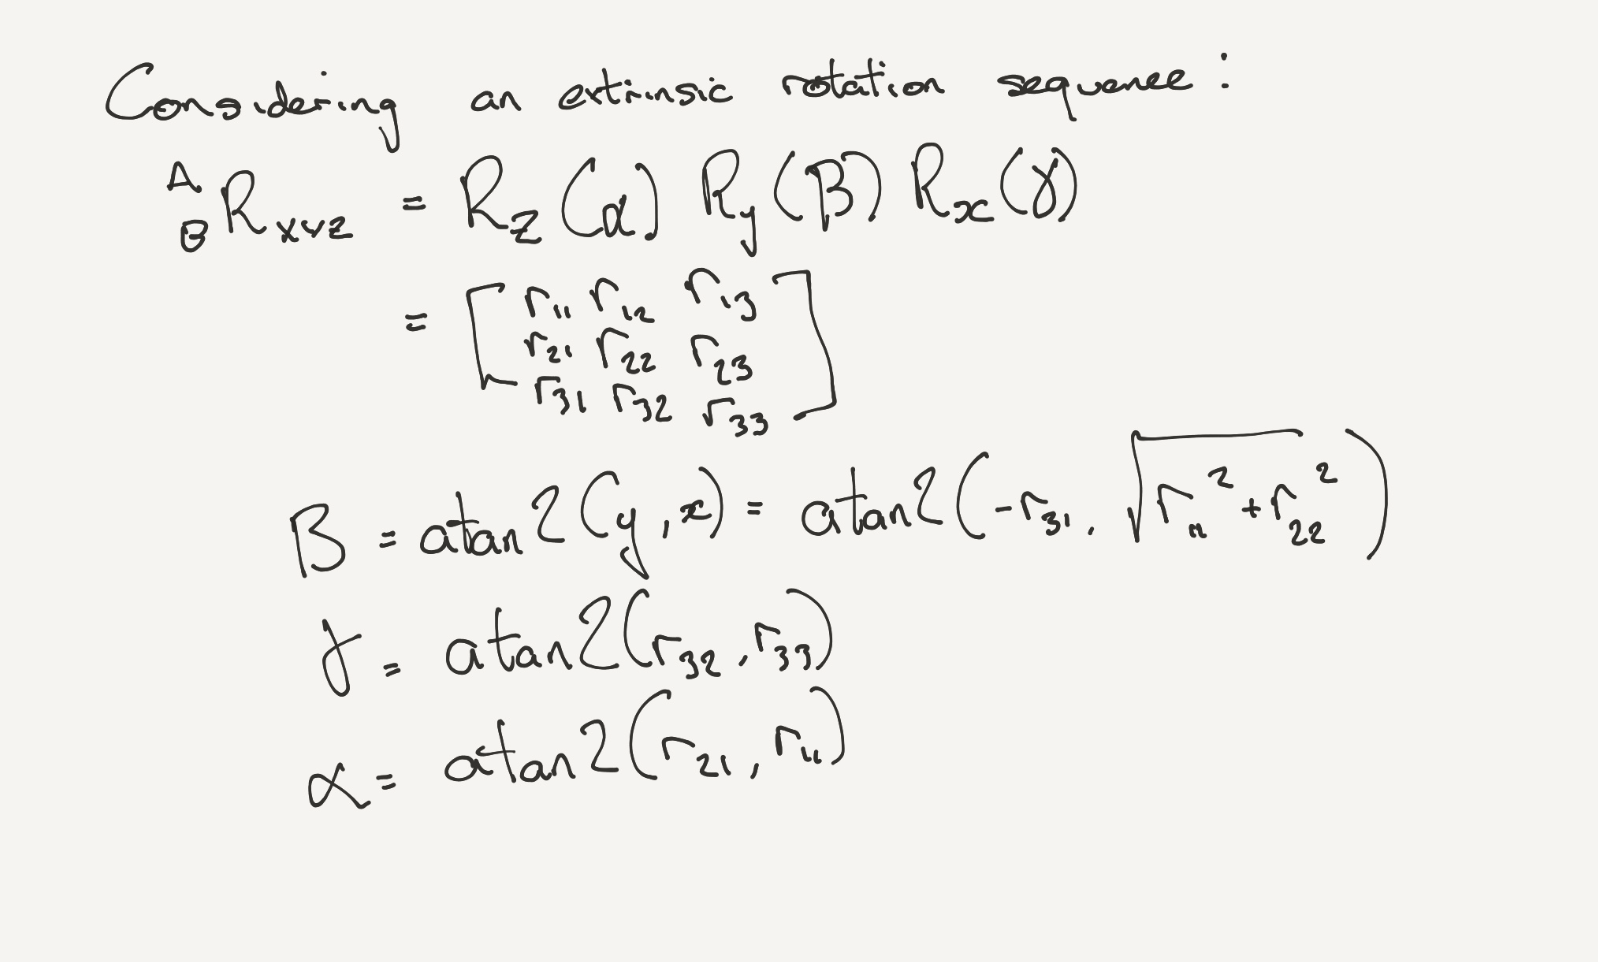 Considering an extrinsic rotation sequence:
^A_B R_xyz = R_z(α) R_y(β) R_x(γ)
= [ r_11 r_12 r_13
r_21 r_22 r_23
r_31 r_32 r_33 ]
β = atan2(y, x) = atan2(-r_31, √(r_11² + r_22²))
γ = atan2(r_32, r_33)
α = atan2(r_21, r_11)